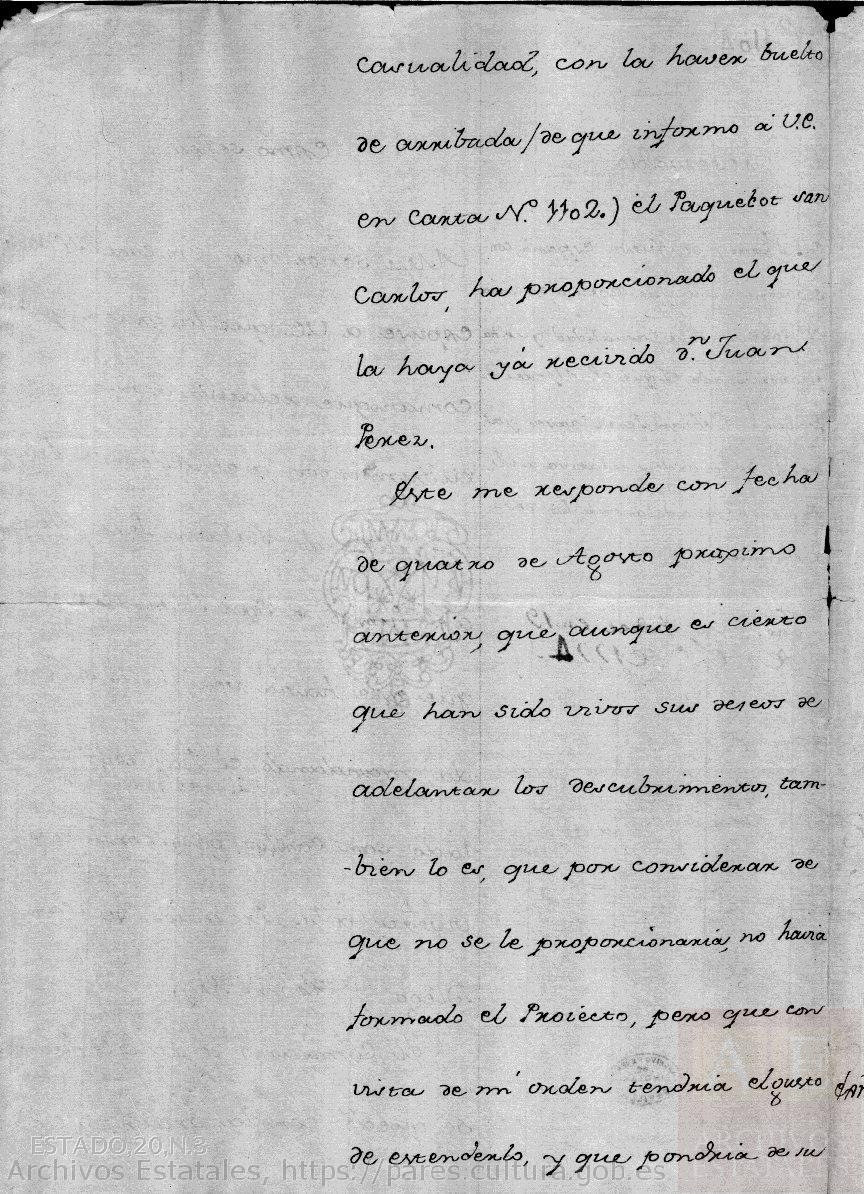 casualidad, con la haver buelto
de arribada (de que informo á V.E.
en Carta N.º 1102.) el Paquebot san
Carlos, ha proporcionado el que
la haya yá recivido d.ⁿ Juan
Perez.
Este me responde con fecha
de quatro de Agosto proximo
anterior, que aunque es cierto
4
que han sido vivos sus deseos de
adelantar los descubrimientos, tam-
-bien lo es, que por considerar de
que no se le proporcionaria, no havia
formado el Proiecto, pero que con
vista de mi orden tendria el gusto
de estenderlo, y que pondria de su
ESTADO,20,N.3
Archivos Estatales, https://pares.cultura.gob.es